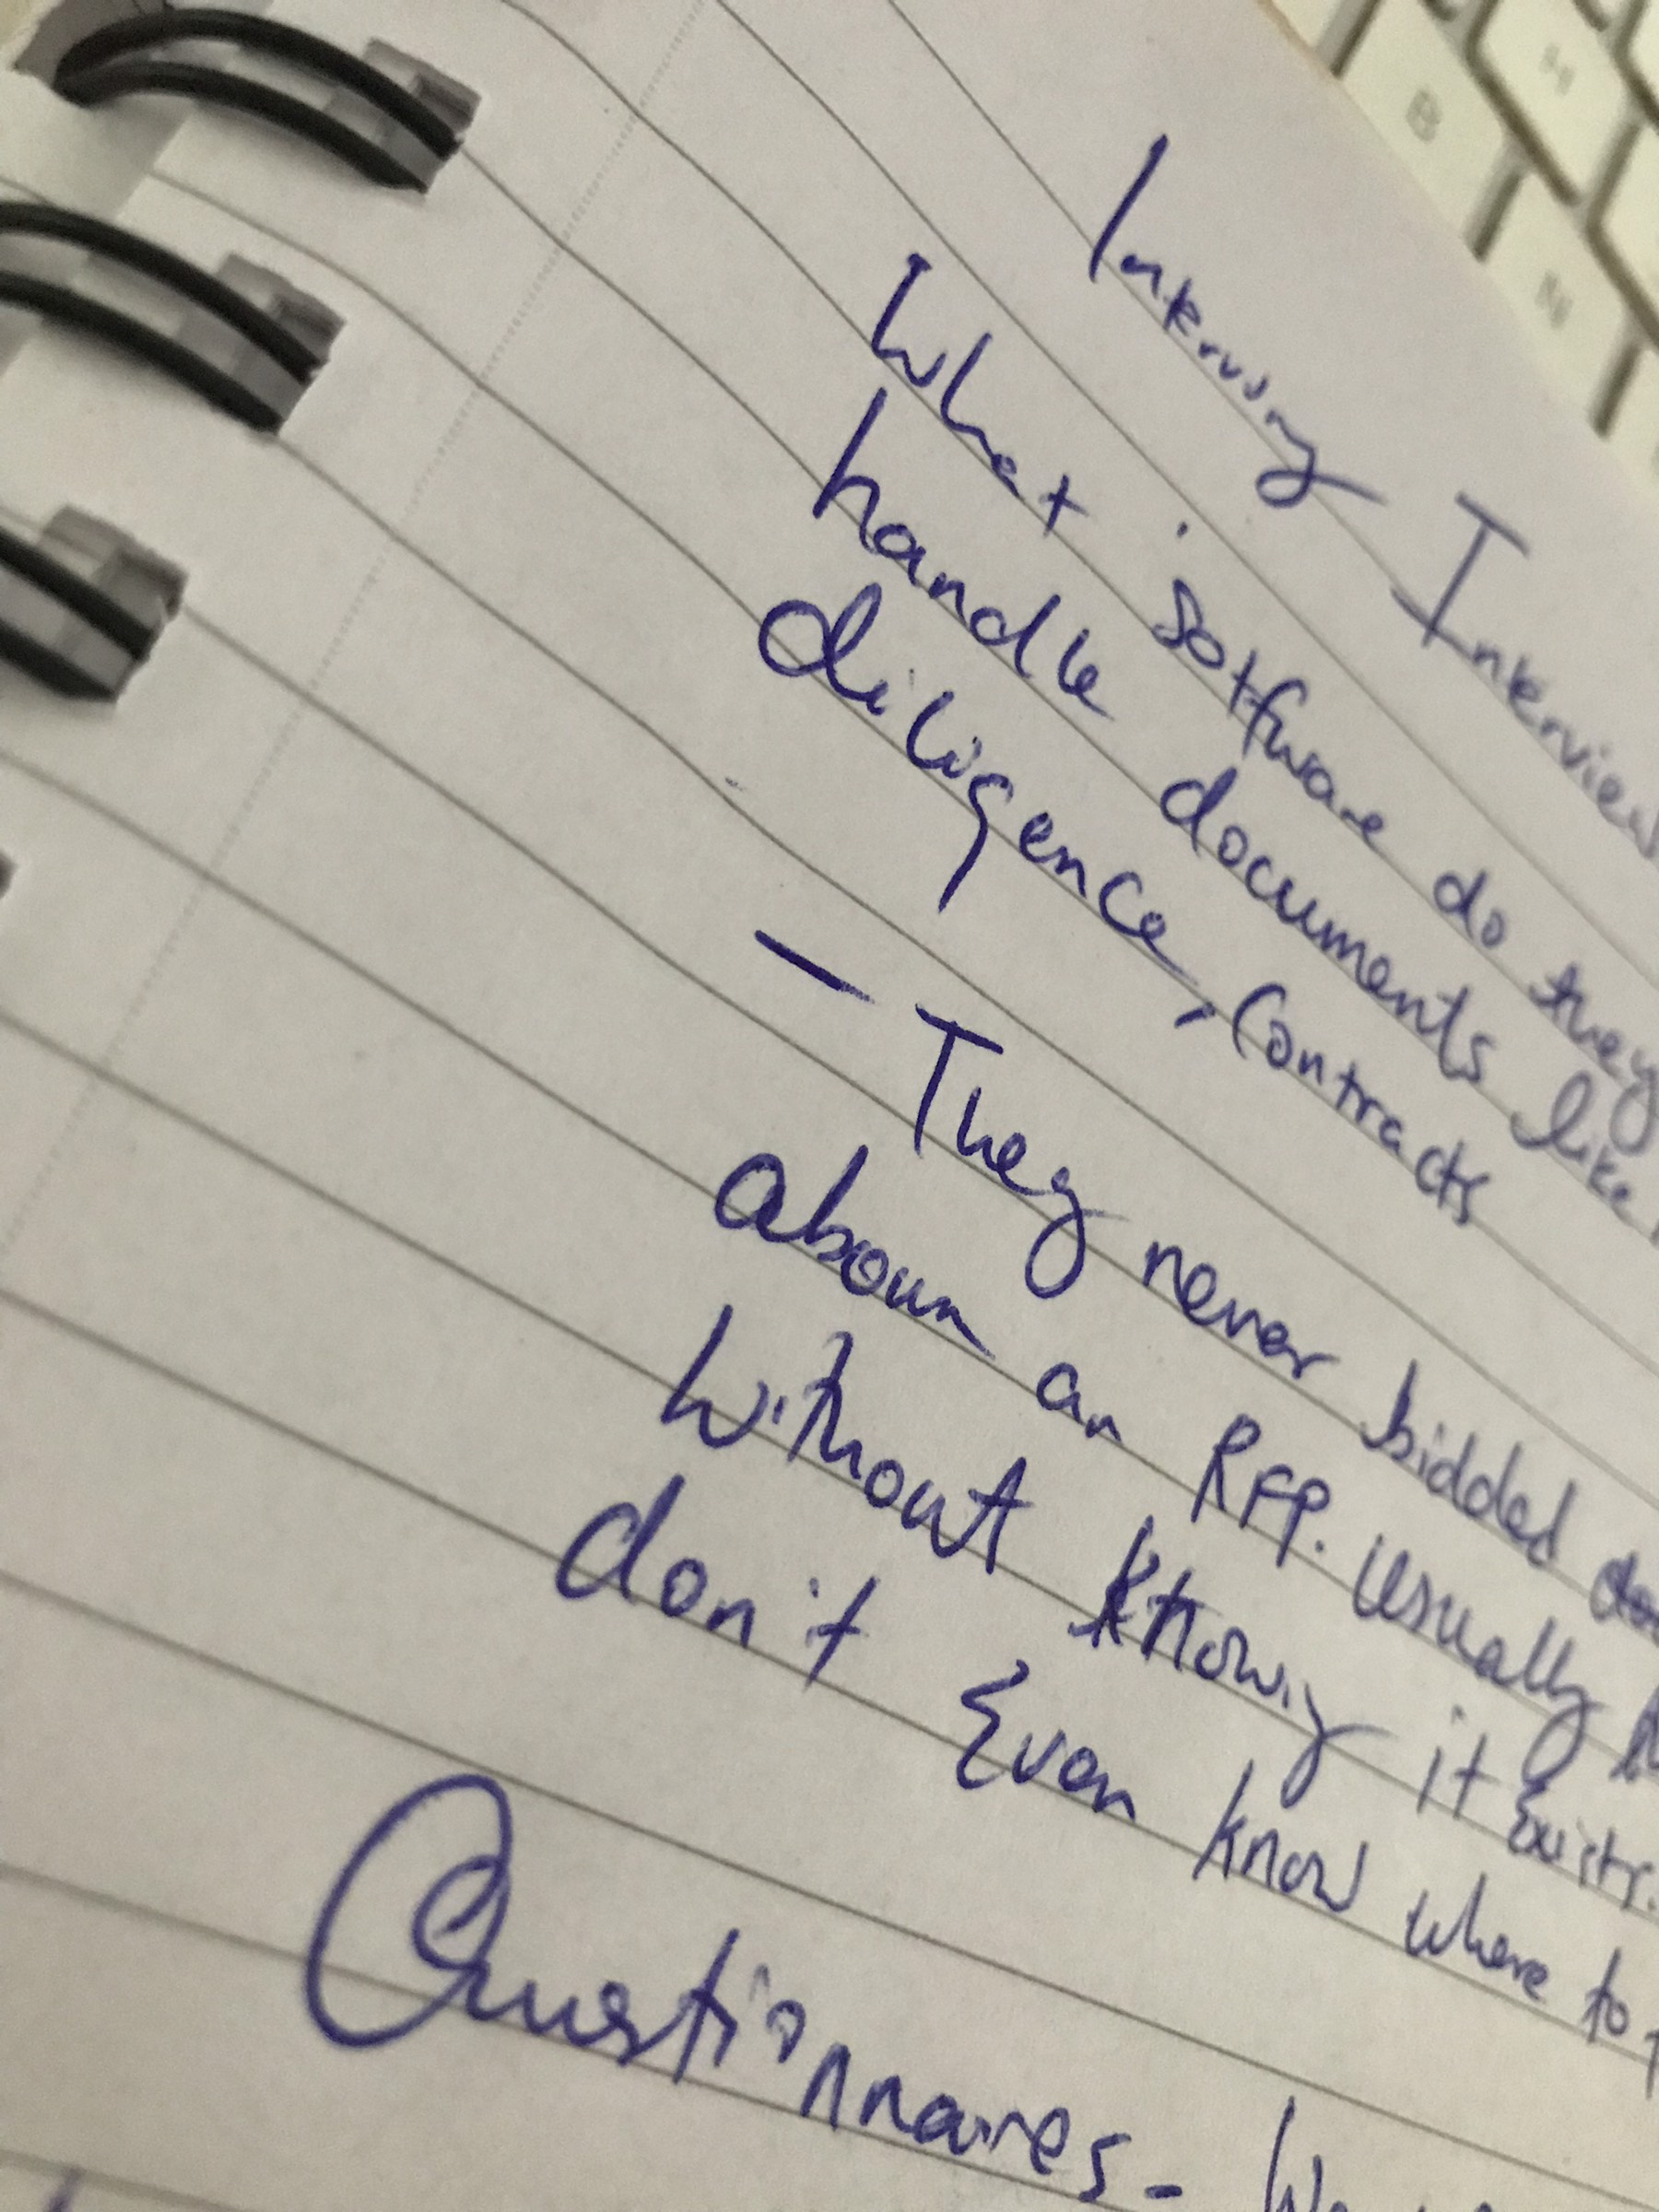 Interviews
What software do they
handle documents like
diligence, contracts
— They never bidded
an RFP. Usually
without knowing it Exists.
don't Even know where to
Questionnaires -
B
H
N